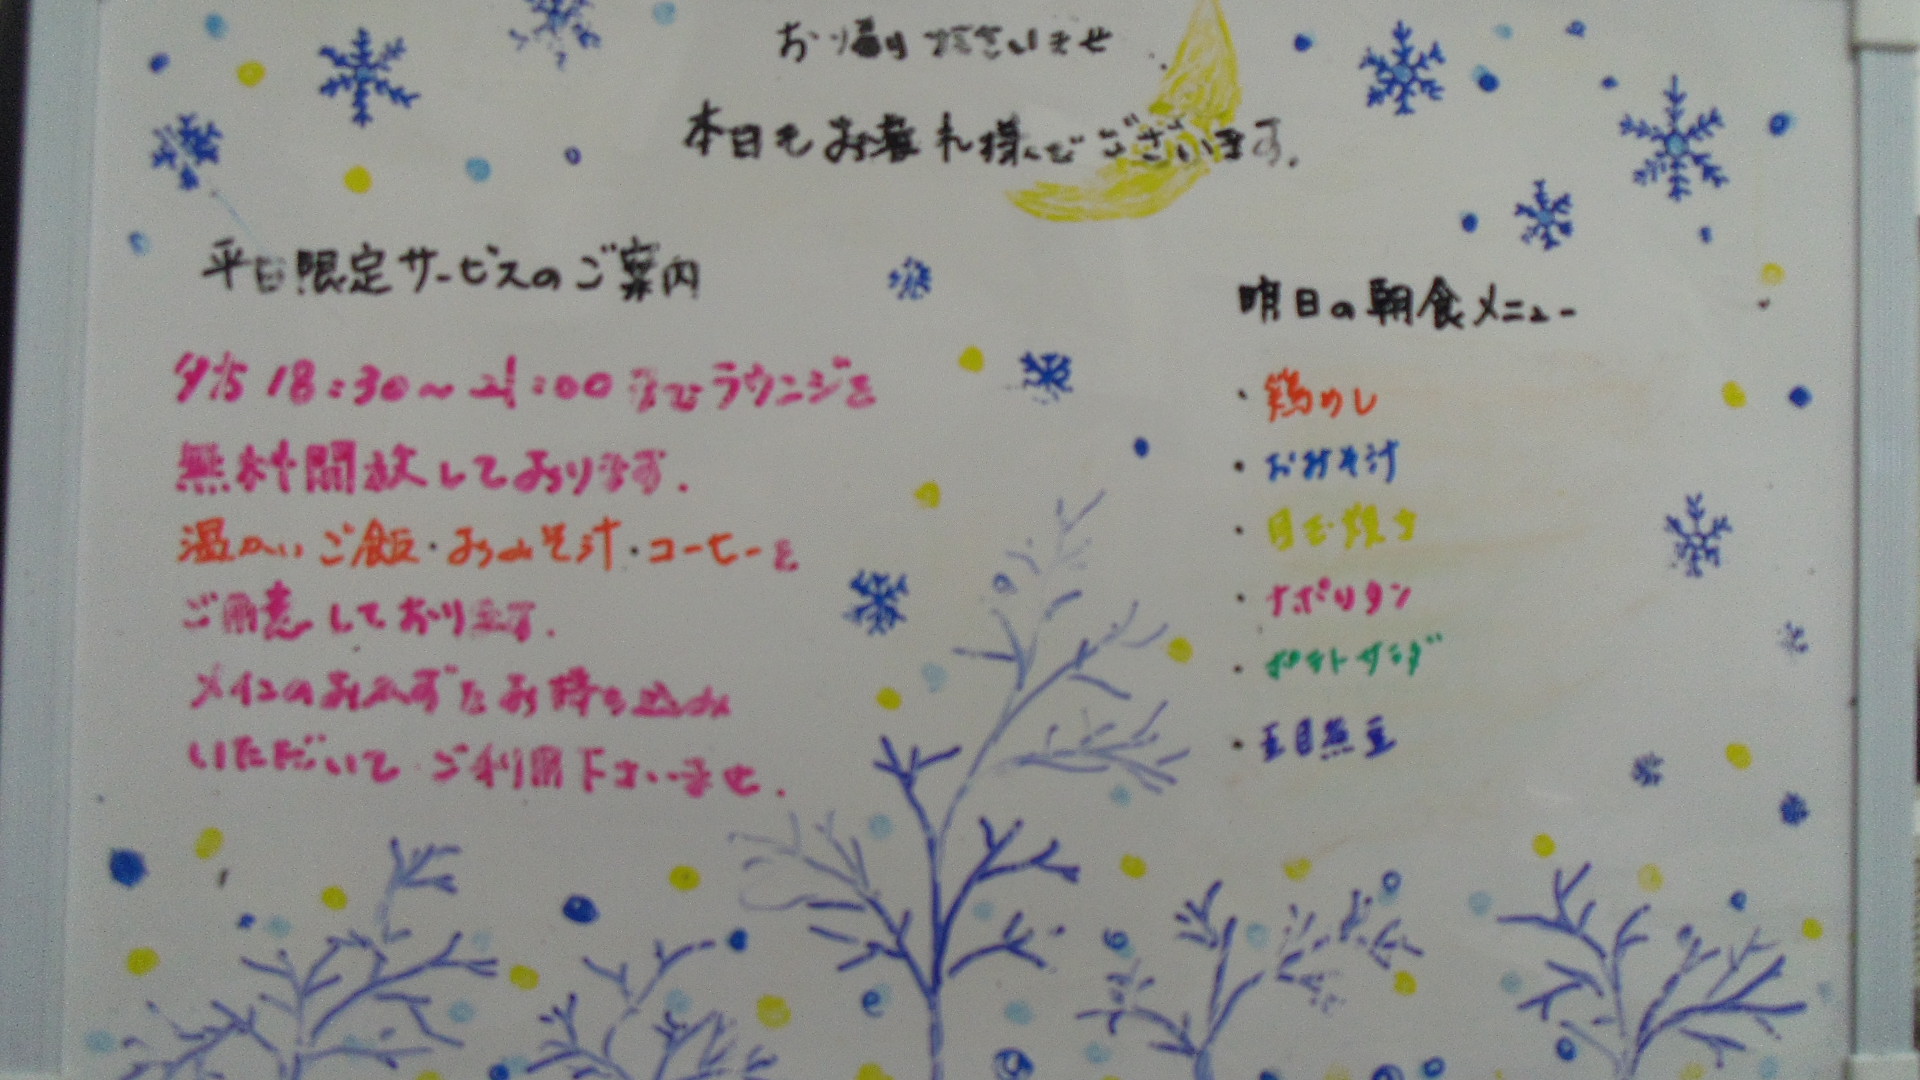 お帰りなさいませ
本日もお疲れ様でございます.
平日限定サービスのご案内
夕方 18:30〜21:00までラウンジを
無料開放しております.
温かいご飯・おみそ汁・コーヒーを
ご用意しております.
メインのおかずをお持ち込み
いただいてご利用下さいませ.
明日の朝食メニュー
・鶏めし
・おみそ汁
・目玉焼き
・ナポリタン
・ポテトサラダ
・五目煮豆